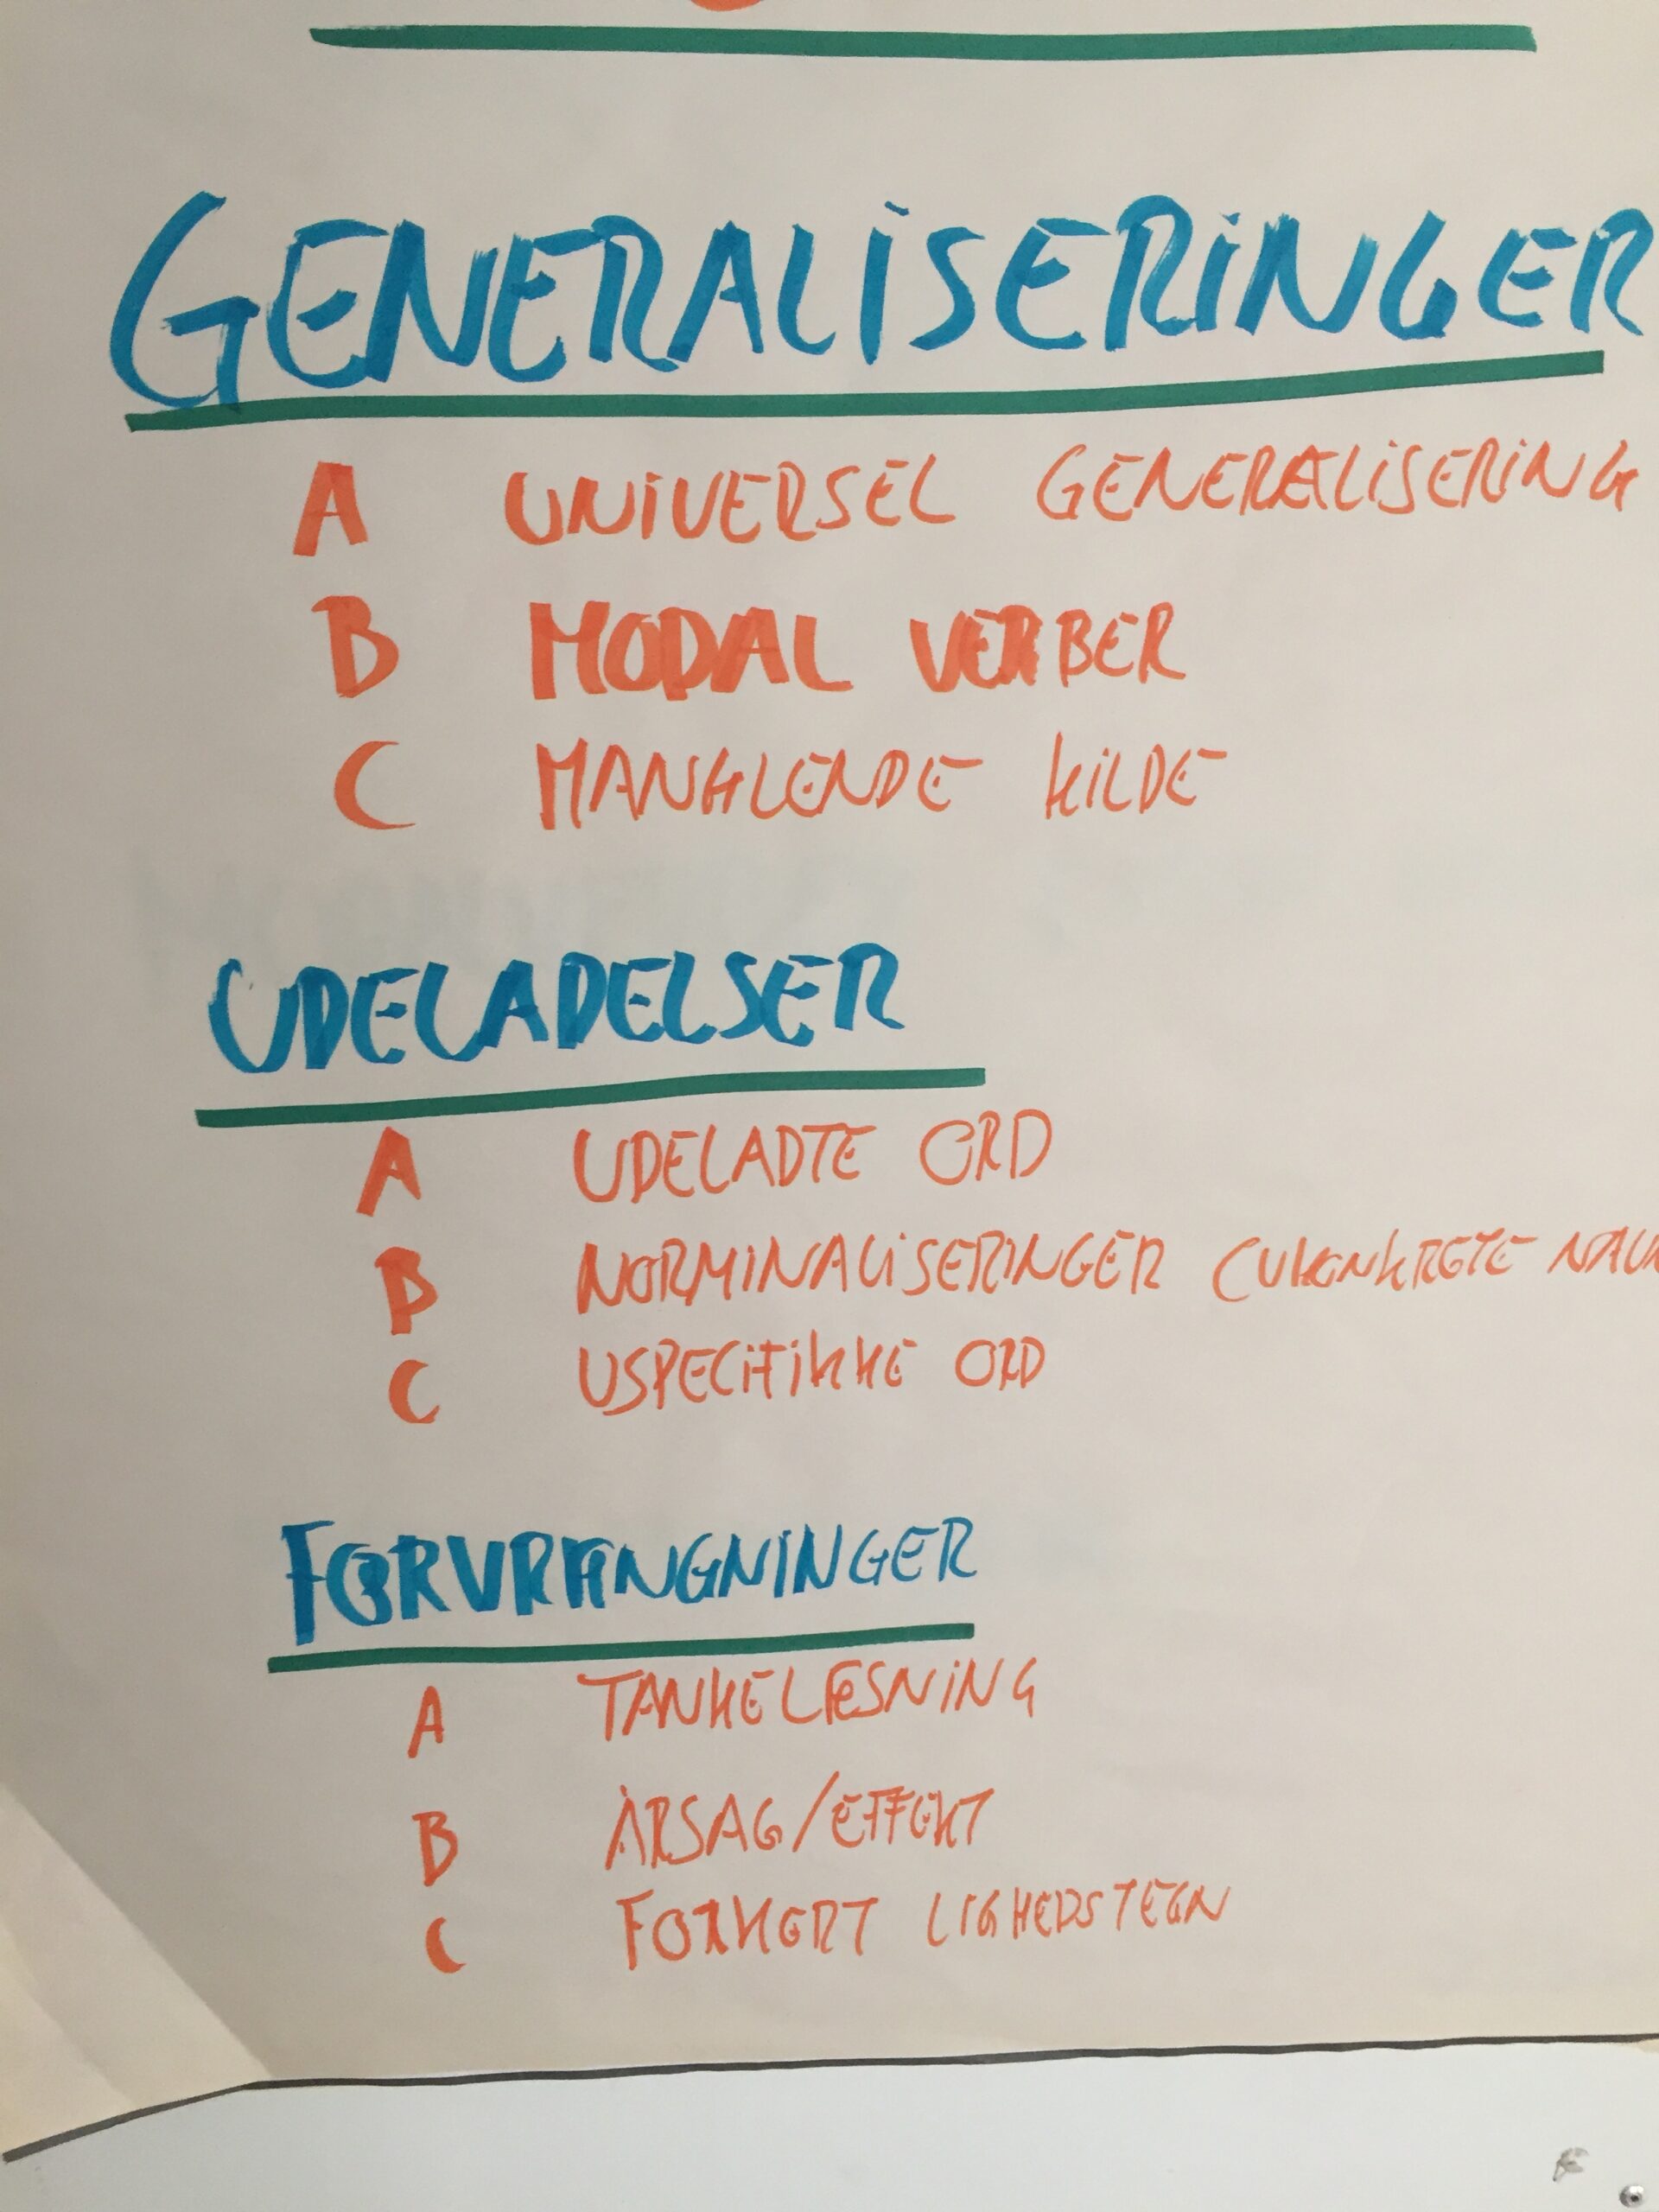 GENERALISERINGER
A UNIVERSEL GENERALISERING
B MODAL VERBER
C MANGLENDE KILDE
UDELADELSER
A UDELADTE ORD
B NORMINALISERINGER (UKONKRETE NAU
C USPECIFIKKE ORD
FORVRÆNGNINGER
A TANKELÆSNING
B ÅRSAG/EFFEKT
C FORKERT LIGHEDSTEGN